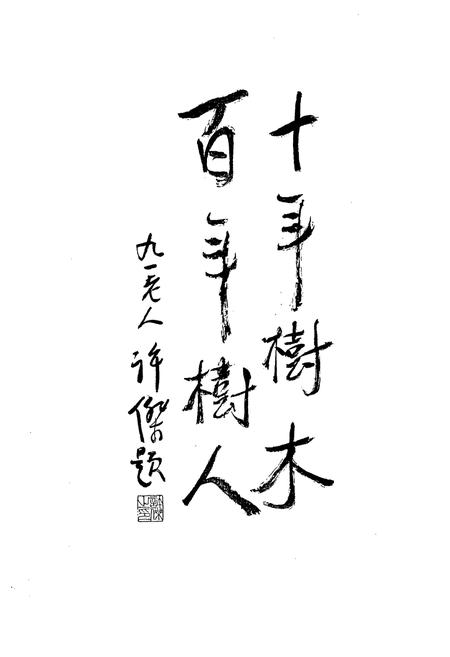 十年樹木
百年樹人
九一老人 许傑题